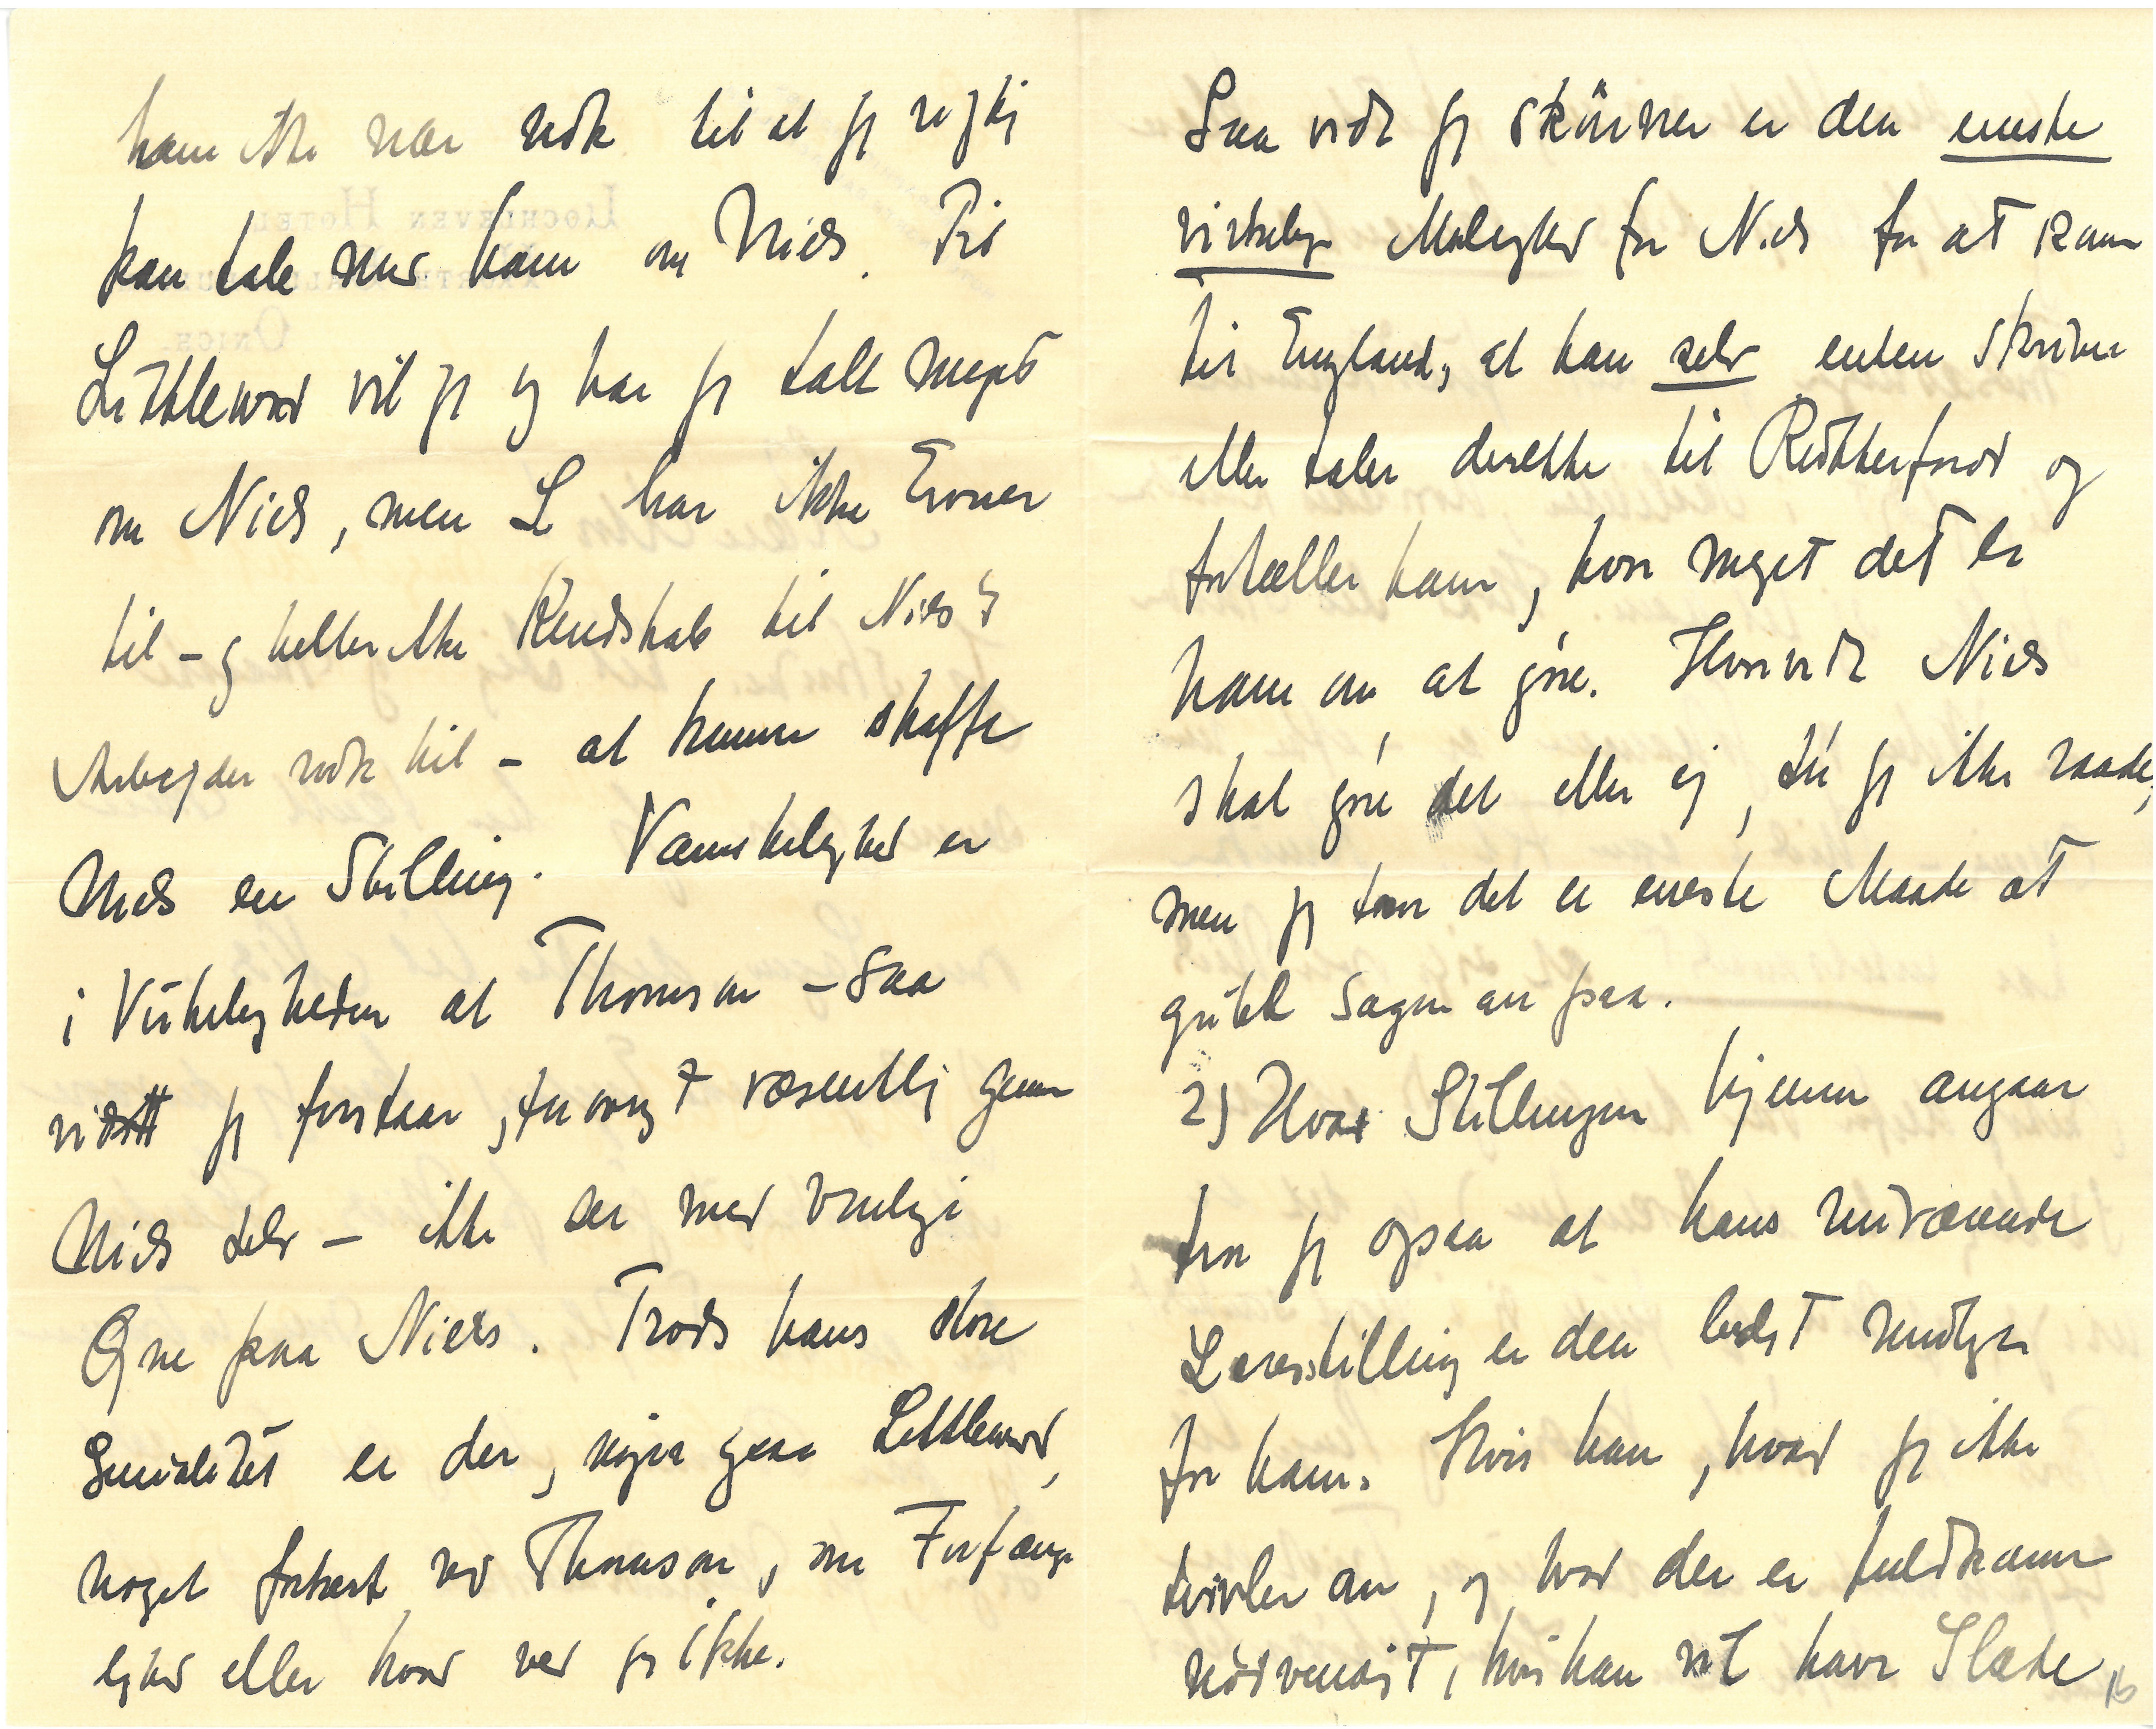 ham ikke nær nok til at jeg rigtig
kan tale med ham om Niels. Til
Littlewood vil jeg og har jeg talt meget
om Niels, men L har ikke Evner
til – og heller ikke Kendskab til Niels's
Arbejder nok til – at kunne skaffe
Niels en Stilling. Vanskelighed er
i Virkeligheden at Thomson – saa
vidt jeg forstaar, forøvrigt væsentlig gennem
Niels selv – ikke ser med venlige
Øjne paa Niels. Trods hans store
Genialitet er der, siger ogsaa Littlewood,
noget forkert ved Thomson, om Forfænge
lighed eller hvad ved jeg ikke.
Saa vidt jeg skönner er den eneste
virkelige Mulighed for Niels for at komme
til England, at han selv enten skriver
eller taler direkte til Rutherford og
fortæller ham, hvor meget det er
ham om at gøre. Hvorvidt Niels
skal gøre det eller ej, tør jeg ikke raade,
men jeg tror det er eneste Maade at
gribe Sagen an paa.
2) Hvad Stillingen hjemme angaar
tror jeg ogsaa at hans nuværende
Lærestilling er den bedst mulige
for ham. Hvis han, hvad jeg ikke
tvivler om, og hvad der er fuldkomment
nødvendigt, hvis han vil have Glæde